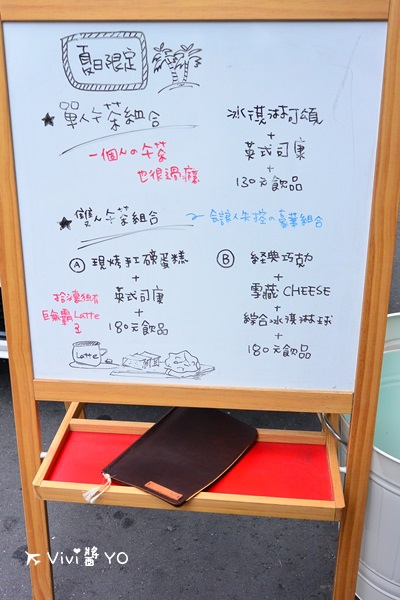 夏日限定
★單人午茶組合
一個人の午茶
也很過癮
冰淇淋可頌
+
英式司康
+
130元飲品
★雙人午茶組合
~會讓人失控の豪華組合
Ⓐ 現烤手工磅蛋糕
+
英式司康
+
180元飲品
巨無霸Latte
Latte
Ⓑ 經典巧克力
+
雪藏CHEESE
+
綜合冰淇淋球
+
180元飲品
Vivi醬YO